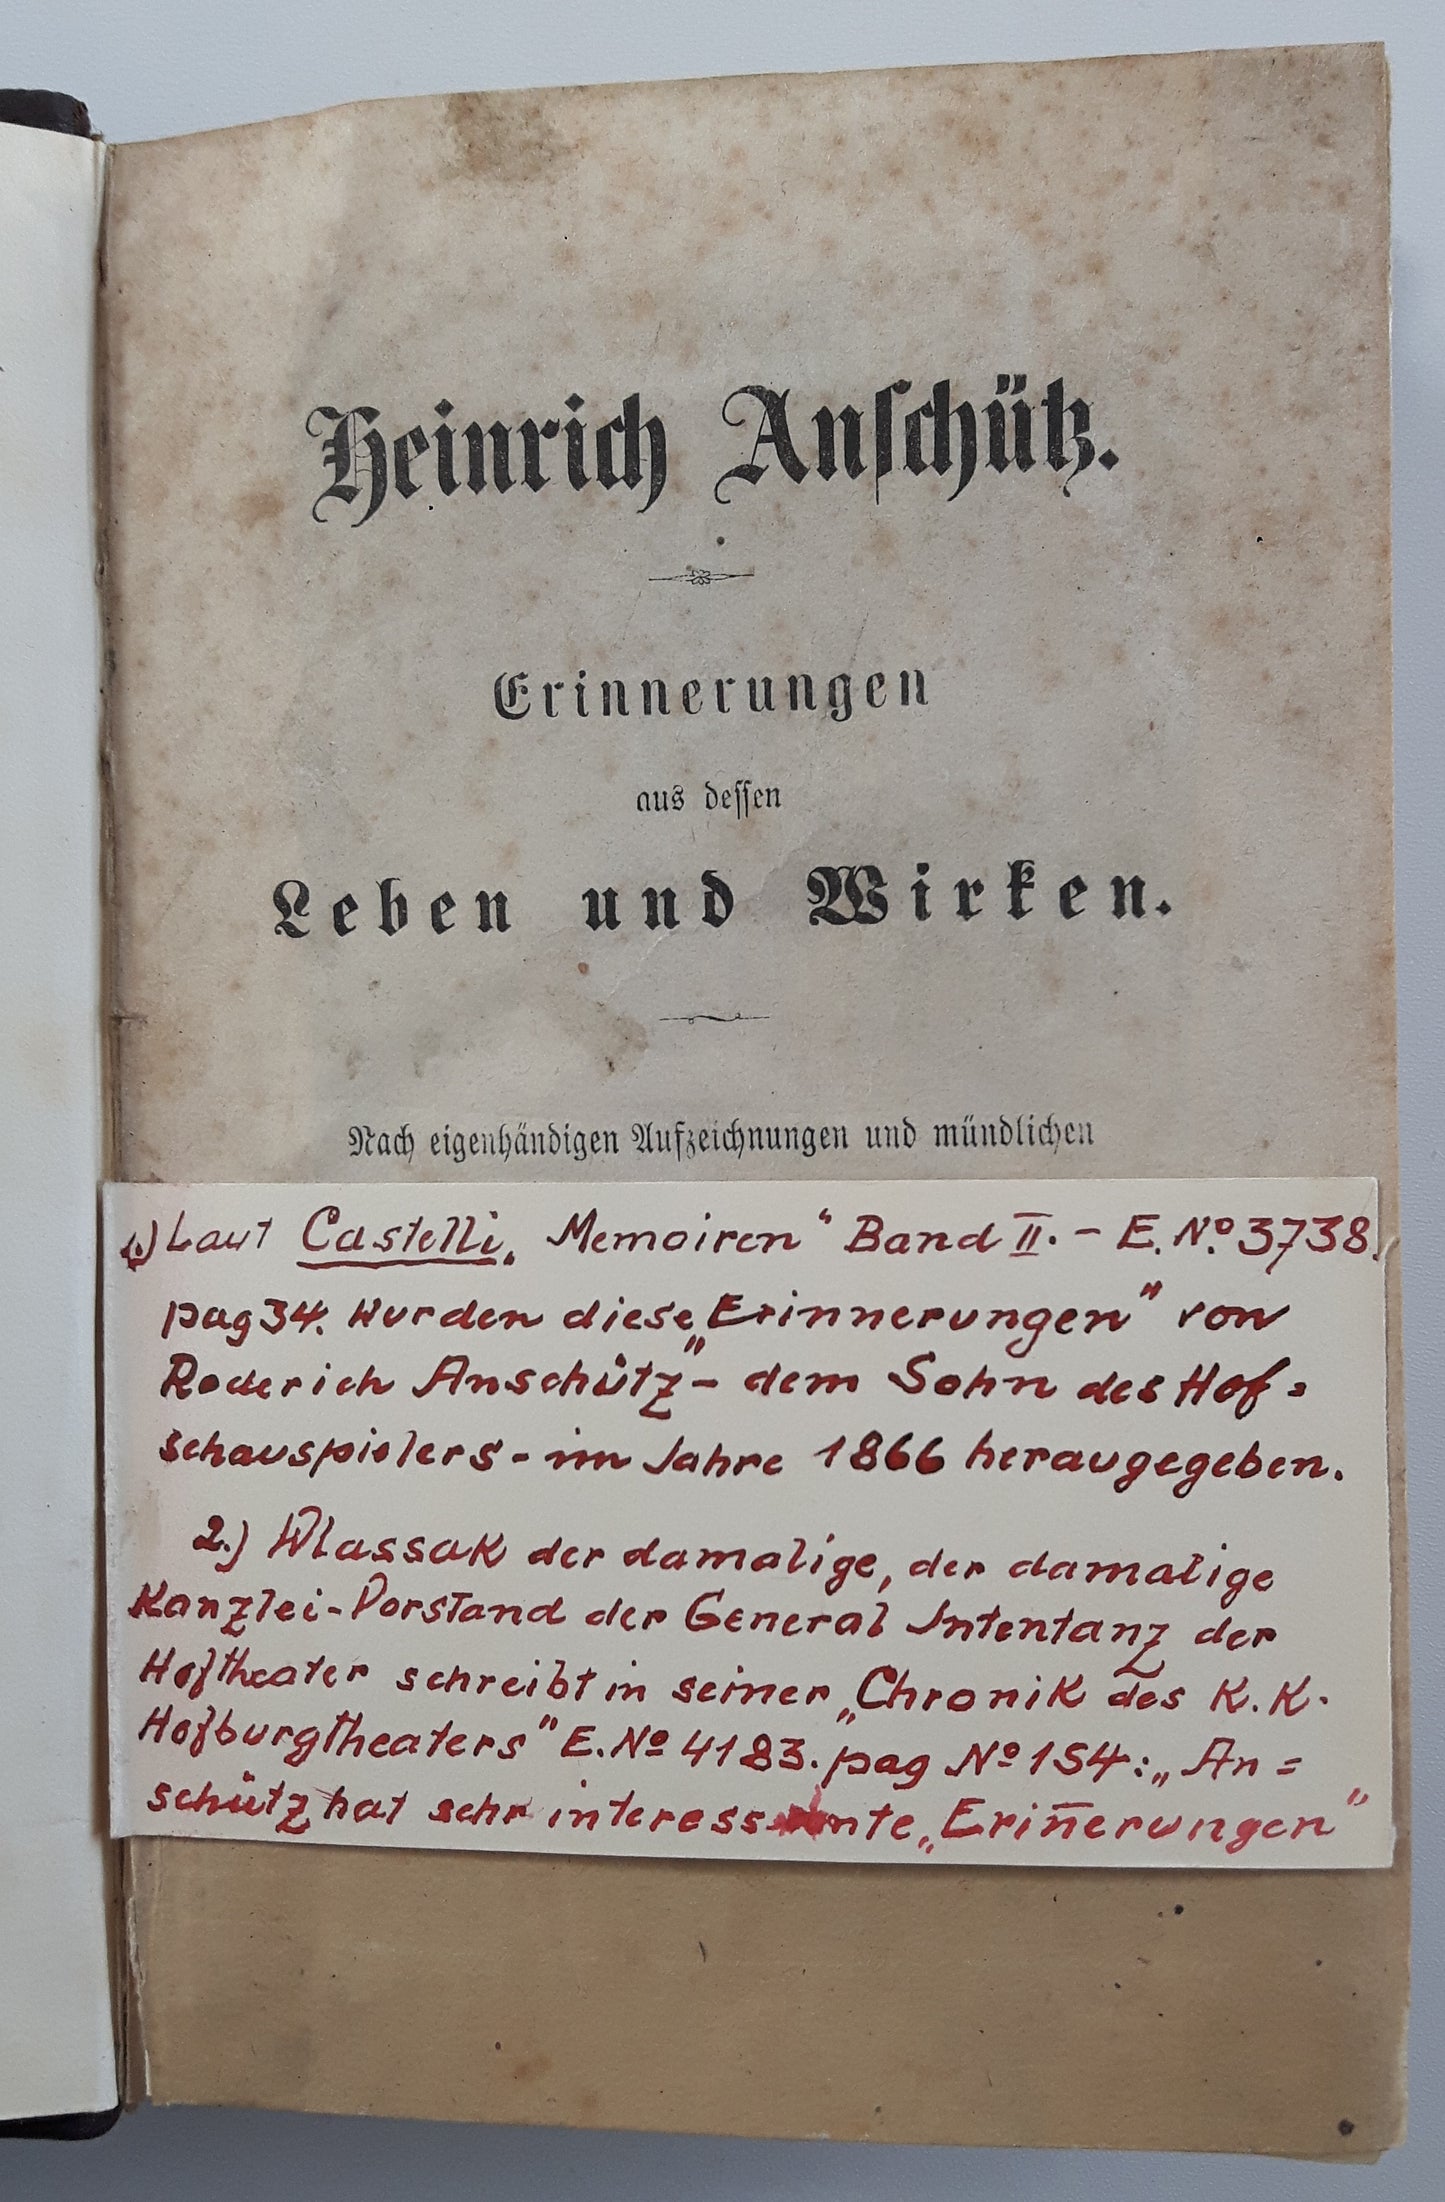 Heinrich Anschütz.
Erinnerungen
aus dessen
Leben und Wirken.
Nach eigenhändigen Aufzeichnungen und mündlichen
1.) Laut Castelli „Memoiren“ Band II. - E. No. 3738.
pag 34. wurden diese „Erinnerungen“ von
Roderich Anschütz - dem Sohn des Hof=
schauspielers - im Jahre 1866 heraugegeben.
2.) Wlassak der damalige, der damalige
Kanzlei-Vorstand der General Intentanz der
Hoftheater schreibt in seiner „Chronik des K. K.
Hofburgtheaters“ E. No 4183. pag No 154: „An=
schütz hat sehr interessante „Erin̄erungen“